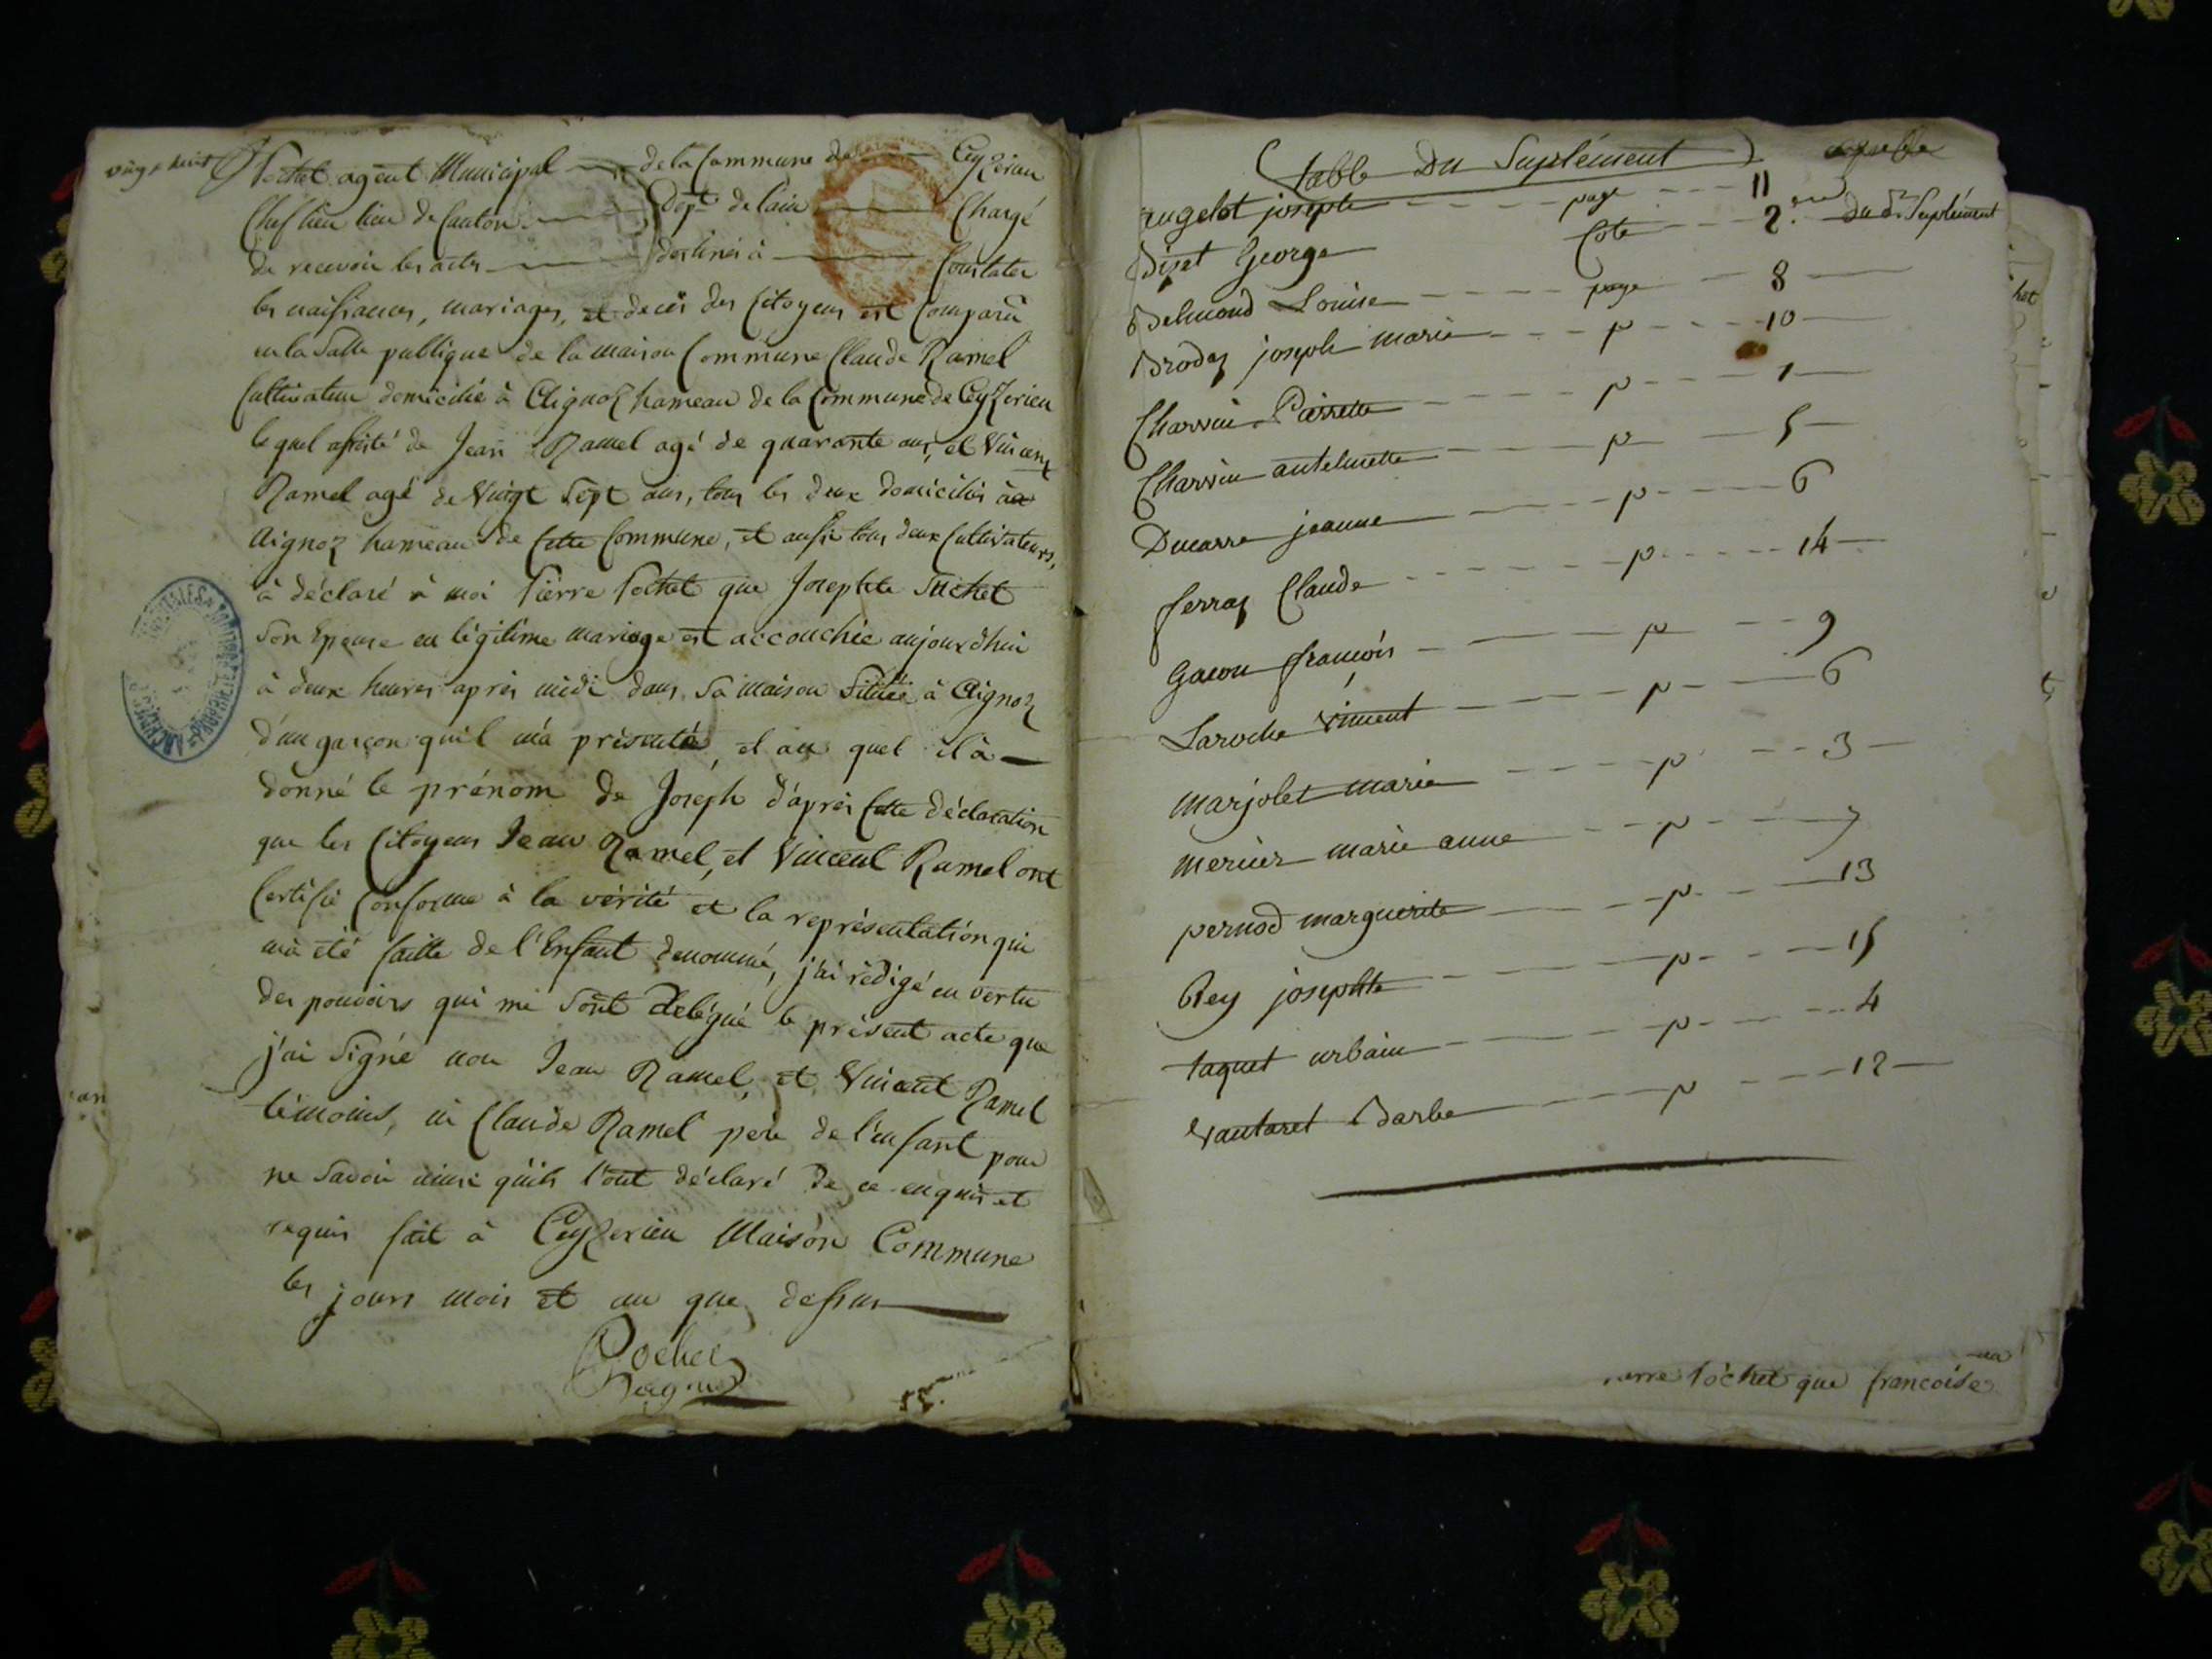 vingt huit
Pochet agent Municipal de la Commune de Ceyzerieu
Chef lieu lieu de Canton Dept de lain Chargé
de recevoir les actes destinés à Constater
les naissances, mariages, et decès des Citoyens est Comparu
en la Salle publique de la maison Commune Claude Ramel
Cultivateur domicilié à Aignoz hameau de la Commune de Ceyzerieu
le quel assisté de Jean Ramel agé de quarante ans, et Vincent
Ramel agé de Vingt Sept ans, tous les deux domiciliés à
Aignoz hameau de Cette Commune, et aussi tous deux Cultivateurs,
à déclaré à moi Pierre Pochet que Josephte Suchet
Son Epouse en légitime mariage est accouchée aujourdhui
à deux heures après midi dans Sa maison Située à Aignoz
d'un garçon quil m'à présenté, et au quel il à
donné le prénom de Joseph d'après Cette déclaration
que les Citoyens Jean Ramel, et Vincent Ramel ont
Certifié Conforme à la vérité et la représentation qui
m'à été faitte de l'Enfant denommé, j'ai rédigé en vertu
des pouvoirs qui me Sont délégué le présent acte que
j'ai Signé non Jean Ramel, et Vincent Ramel
témoins, ni Claude Ramel père de l'enfant pour
ne Savoir ainsi quils l'ont déclaré de ce enquis et
requis fait à Ceyzerieu Maison Commune
les jours mois et an que dessus
Pochet
table Du Suplément
angelot josephte page 11
Bizet George Cote 2 du dt Suplément
Belmond Louise page 8
Brodaz joseph marie p 10
Charvin Pierrette p 1
Charvin antelmette p 5
Ducarre jeanne p 6
ferraz Claude p 14
Gacon françois p 9
Laroche Vincent p 6
marjolet marie p 3
mercier marie anne p 7
pernod marguerite p 13
Rey josephte p 15
taquet urbain p 4
Vautaret Barbe p 12
Pochet que francoise